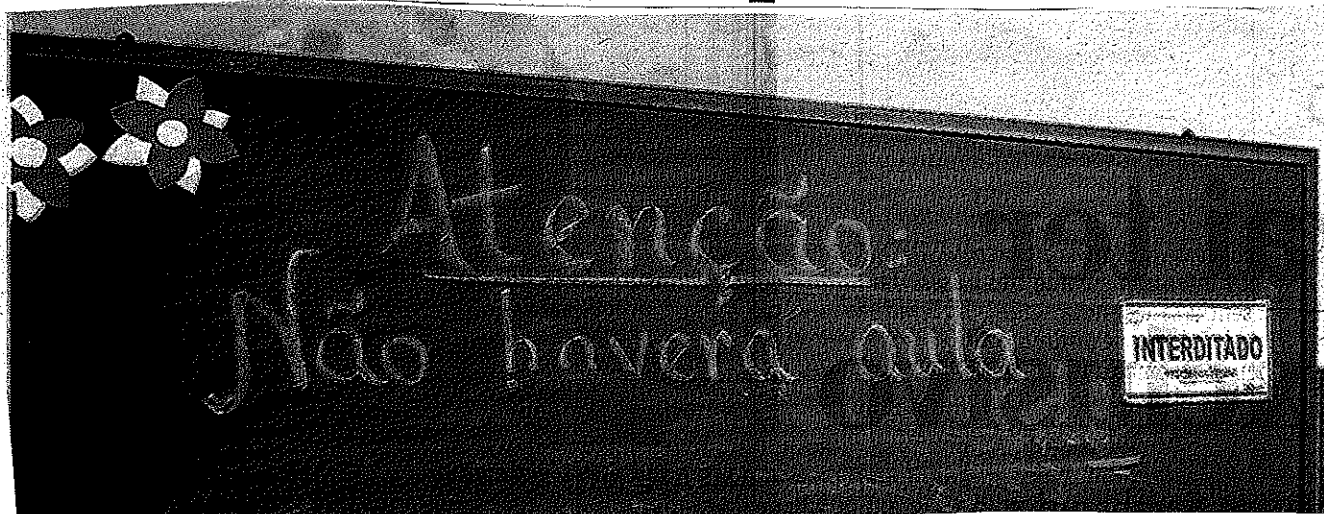 Atenção:
Não haverá aula
INTERDITADO